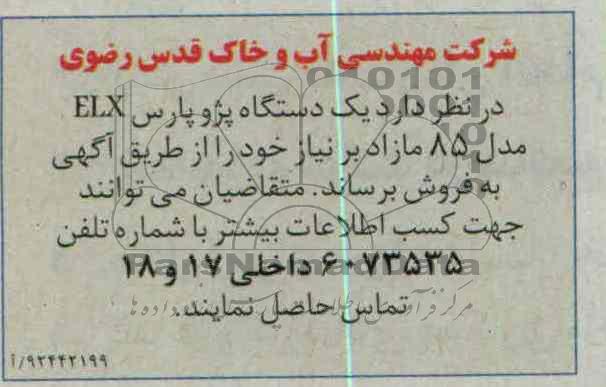 شرکت مهندسی آب و خاک قدس رضوی
در نظر دارد یک دستگاه پژو پارس ELX
مدل ۸۵ مازاد بر نیاز خود را از طریق آگهی
به فروش برساند. متقاضیان می توانند
جهت کسب اطلاعات بیشتر با شماره تلفن
۶۰۷۳۵۳۵ داخلی ۱۷ و ۱۸
تماس حاصل نمایند.
۹۲۴۴۲۱۹۹/آ